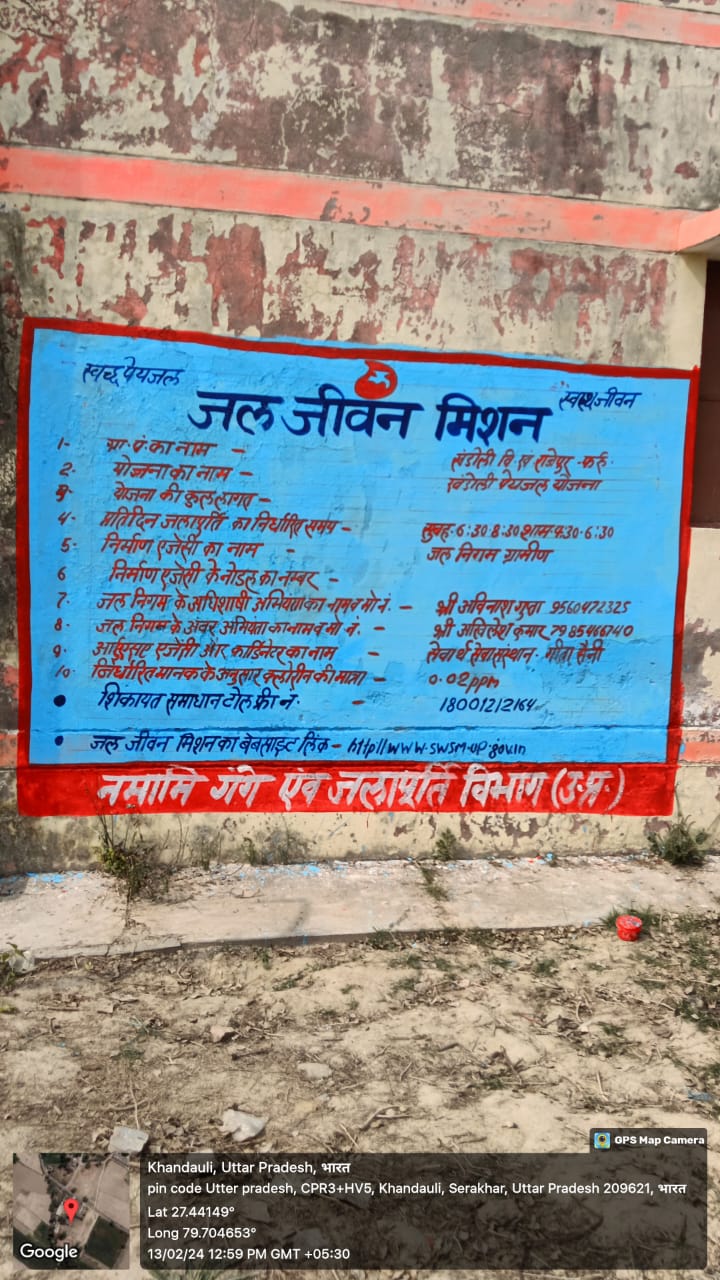 स्वच्छ पेयजल
स्वस्थ जीवन
जल जीवन मिशन
1- ग्रा. पं. का नाम - खंडोली वि. ख राजेपुर - फर्रु.
2- योजना का नाम - खंडोली पेयजल योजना
3- योजना की कुल लागत -
4- प्रतिदिन जलापूर्ति का निर्धारित समय - सुबह 6:30 8:30 शाम 4:30-6:30
5- निर्माण एजेंसी का नाम - जल निगम ग्रामीण
6 निर्माण एजेंसी के नोडल का नम्बर -
7. जल निगम के अधिशाषी अभियंता का नाम व मो नं. - श्री अविनाश गुप्ता 9560472325
8. जल निगम के अवर अभियंता का नाम व मो नं. - श्री अखिलेश कुमार 7985466140
9. आईएसए एजेंसी और कार्डिनेटर का नाम - सेवार्थ सेवा संस्थान - गीता सैनी
10. निर्धारित मानक के अनुसार क्लोरीन की मात्रा - 0.02 ppm
● शिकायत समाधान टोल फ्री नं. - 18001212164
● जल जीवन मिशन का बेबसाइट लिंक - http//www.swsm-up-gov.in
नमामि गंगे एवं जलापूर्ति विभाग (उ.प्र.)
GPS Map Camera
Khandauli, Uttar Pradesh, भारत
pin code Utter pradesh, CPR3+HV5, Khandauli, Serakhar, Uttar Pradesh 209621, भारत
Lat 27.44149°
Long 79.704653°
13/02/24 12:59 PM GMT +05:30
Google